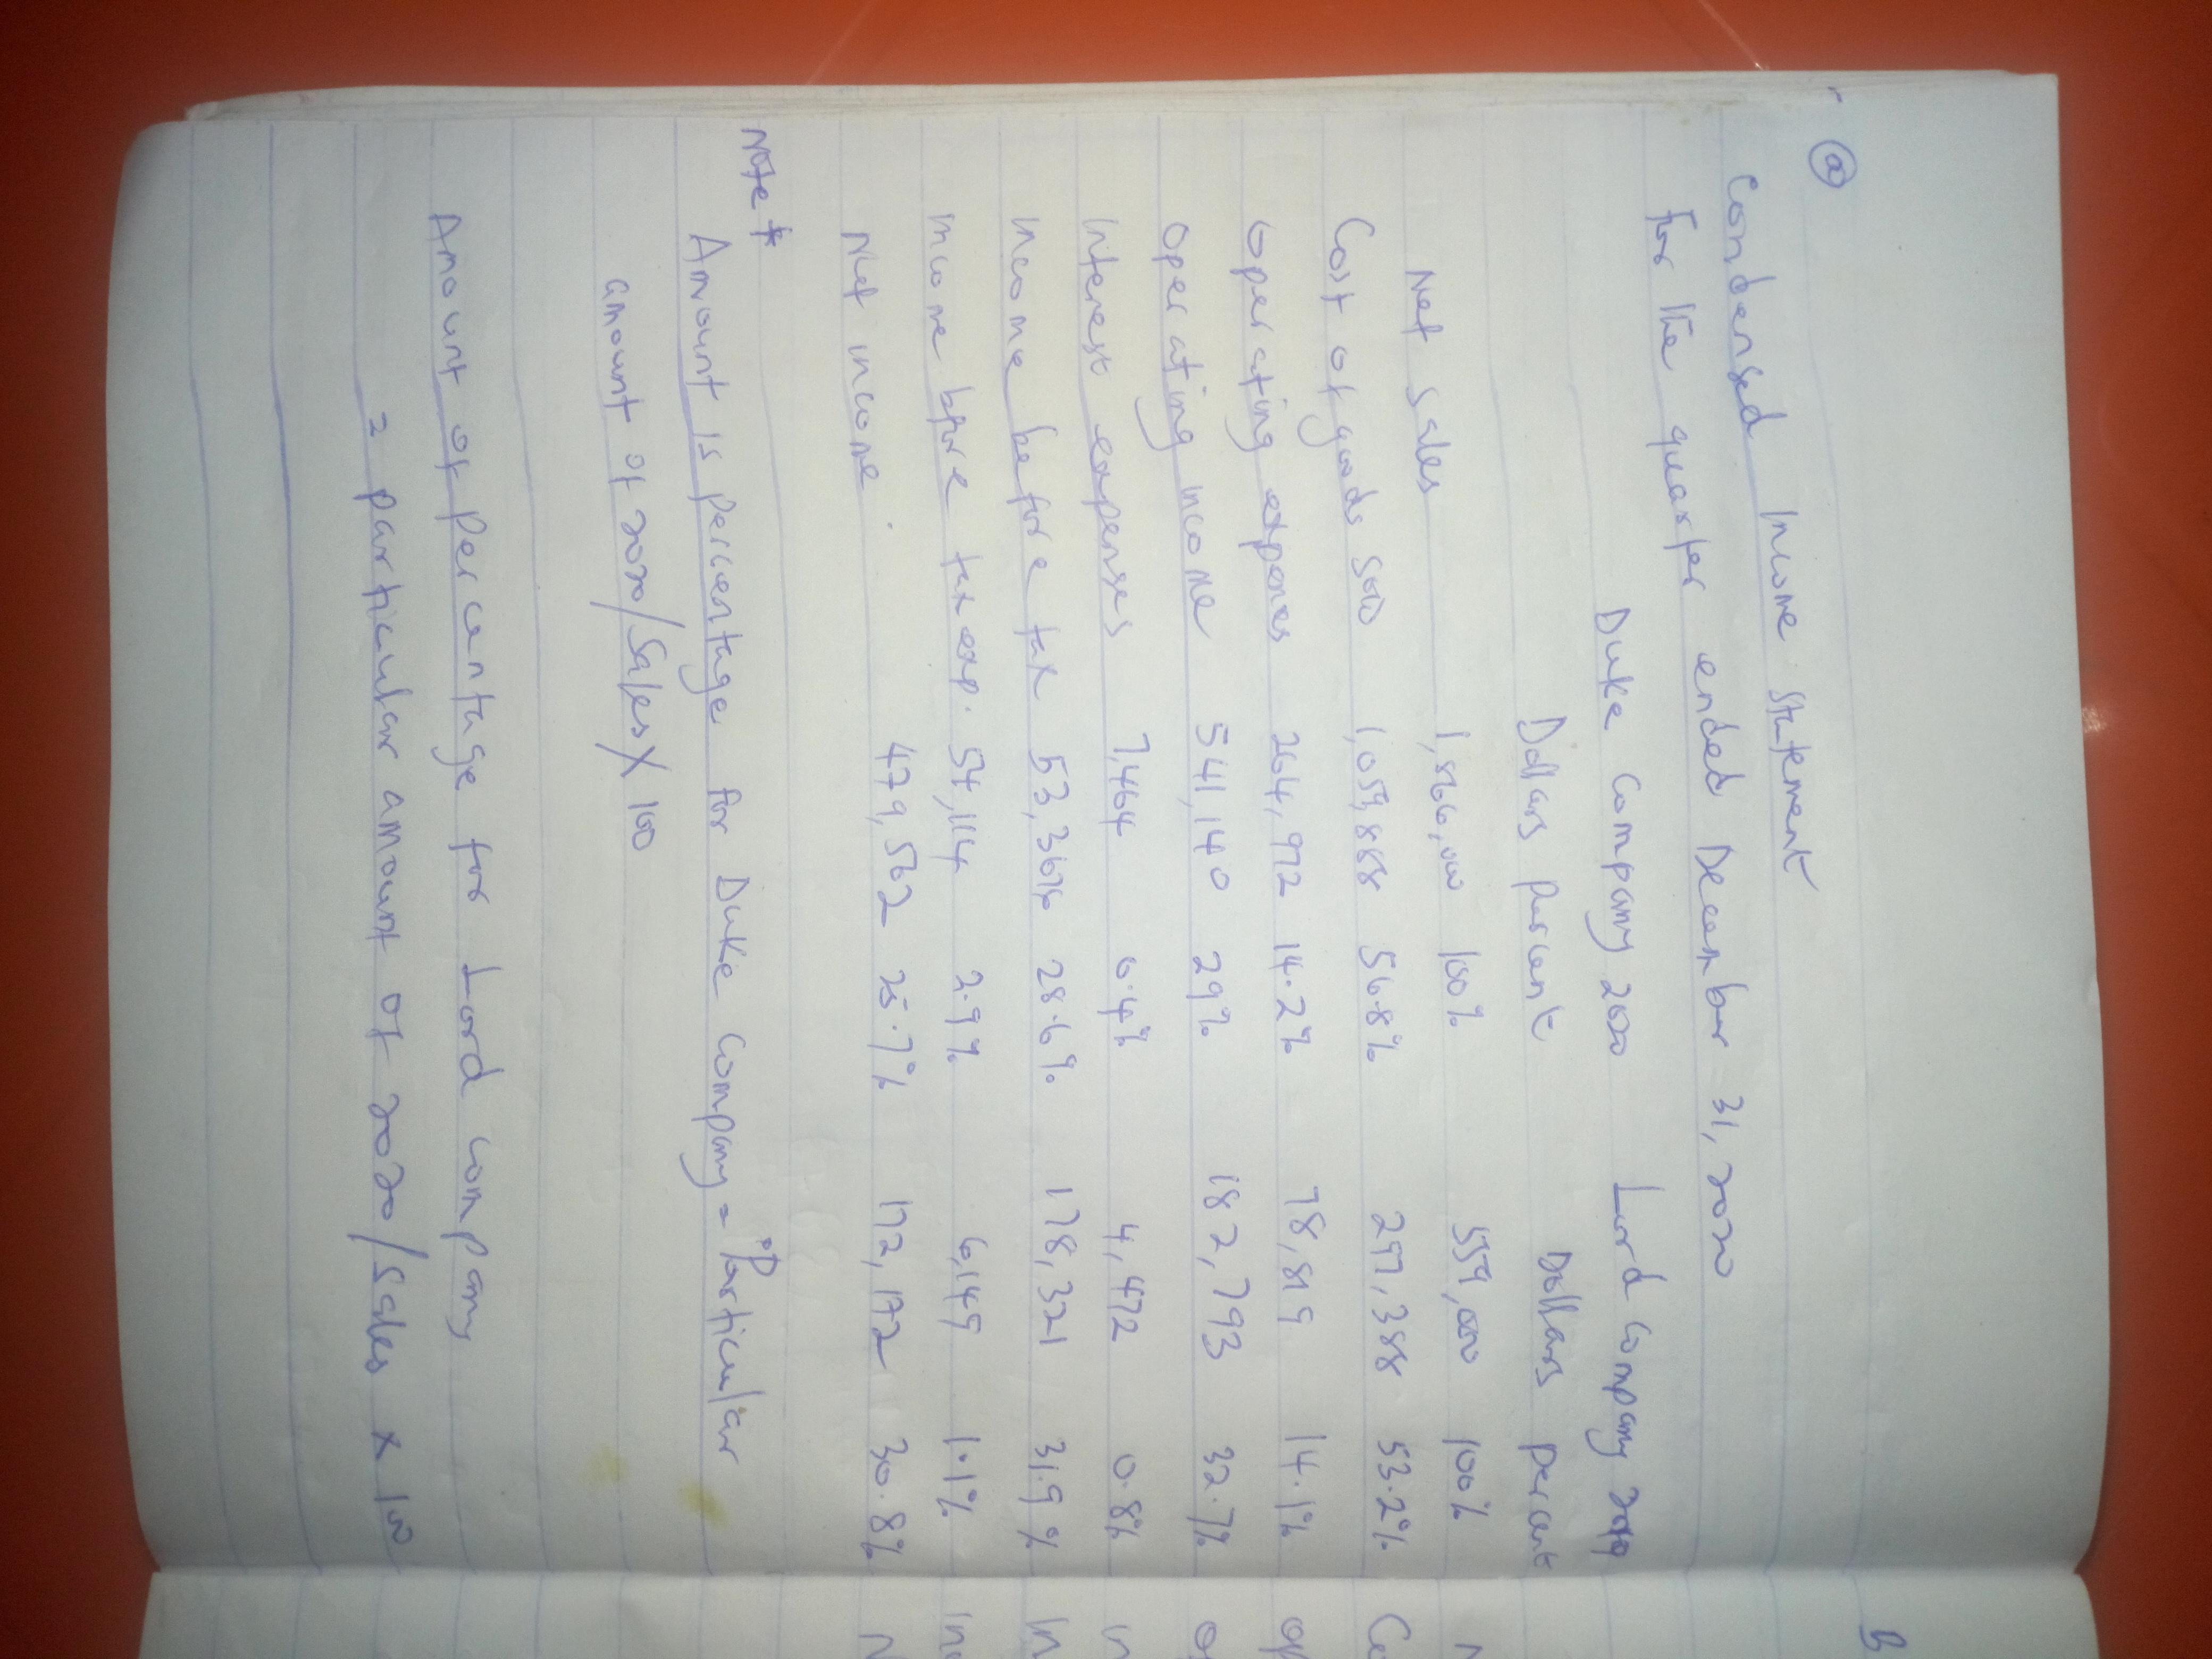 (a)
Condensed Income Statement
For the quarter ended December 31, 2020
Duke Company 2020 Lord Company
Dollars percent Dollars percent
Net sales 1,866,000 100% 559,000 100%
Cost of goods sold 1,059,888 56.8% 297,388 53.2%
Operating expenses 264,972 14.2% 78,819 14.1%
Operating income 541,140 29% 182,793 32.7%
Interest expenses 7,464 0.4% 4,472 0.8%
Income before tax 28.6% 178,321 31.9%
Income bfore tax exp. 54,114 2.9% 6,149 1.1%
Net income 479,562 25.7% 172,172 30.8%
Note*
Amount is percentage for Duke Company = Particular
amount of 2020/Sales X 100
Amount of percentage for Lord company
= particular amount of 2020/Sales x 100
B
N
Co
op
o
In
In
Inc
N